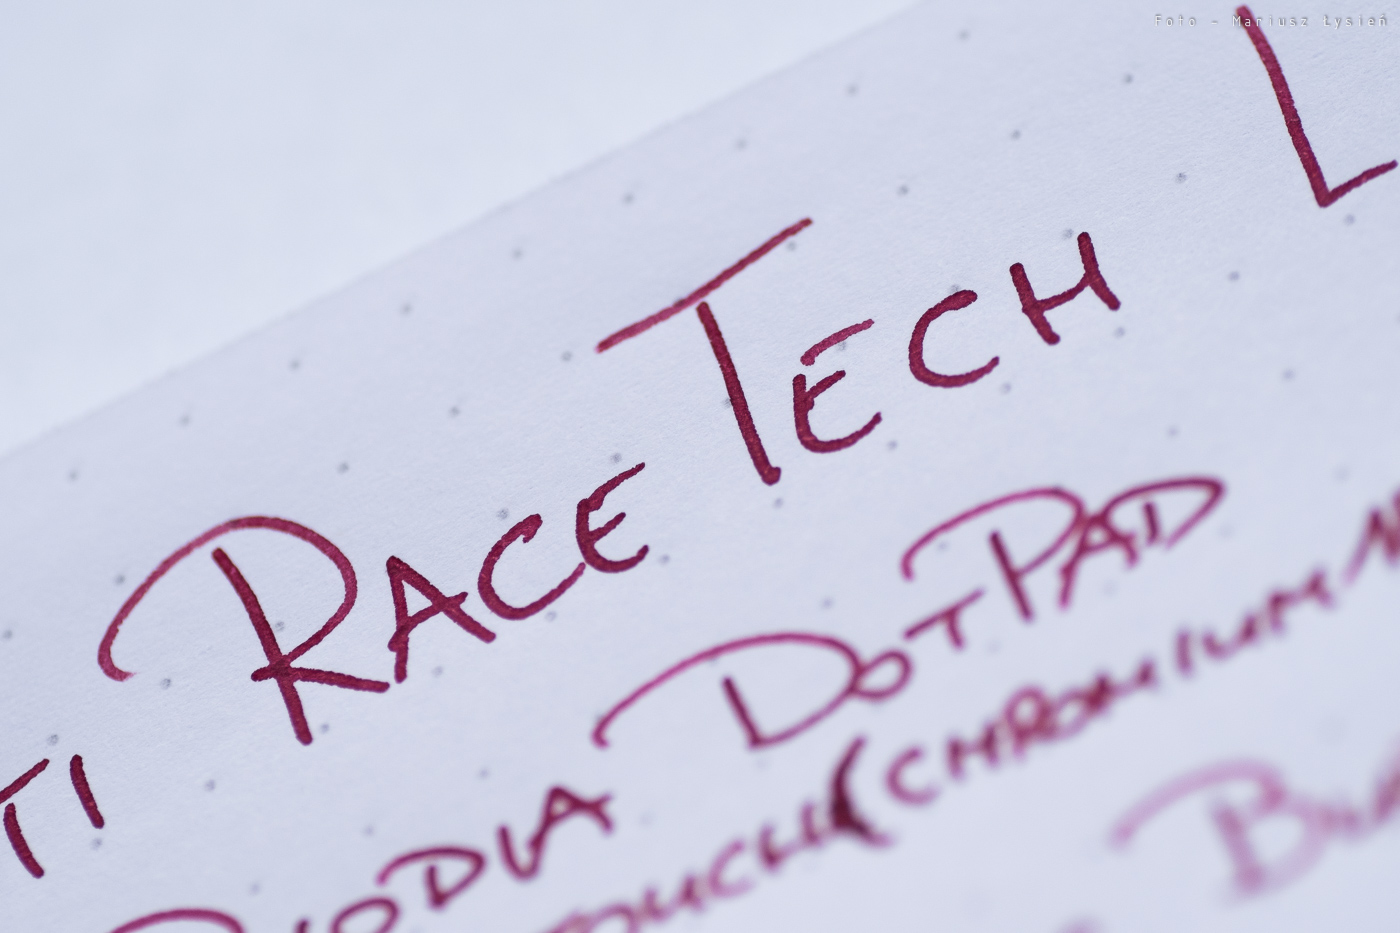 Foto - Mariusz Łysień
TI RACE TECH L
RHODIA DOT PAD
(CHROMIUM